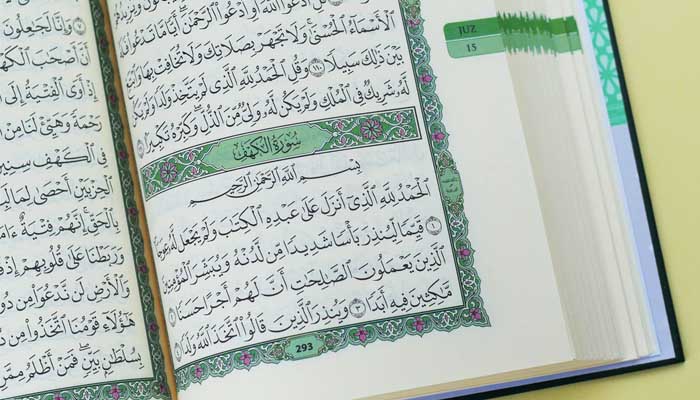 قُلِ ٱدْعُوا۟ ٱللَّهَ أَوِ ٱدْعُوا۟ ٱلرَّحْمَٰنَ أَيًّا مَّا تَدْعُوا۟ فَلَهُ
ٱلْأَسْمَآءُ ٱلْحُسْنَىٰ وَلَا تَجْهَرْ بِصَلَاتِكَ وَلَا تُخَافِتْ بِهَا وَٱبْتَغِ
بَيْنَ ذَٰلِكَ سَبِيلًا ١١٠ وَقُلِ ٱلْحَمْدُ لِلَّهِ ٱلَّذِى لَمْ يَتَّخِذْ وَلَدًا وَلَمْ يَكُن
لَّهُۥ شَرِيكٌ فِى ٱلْمُلْكِ وَلَمْ يَكُن لَّهُۥ وَلِىٌّ مِّنَ ٱلذُّلِّ وَكَبِّرْهُ تَكْبِيرًا
سُورَةُ الكَهْفِ
بِسْمِ ٱللَّهِ ٱلرَّحْمَٰنِ ٱلرَّحِيمِ
ٱلْحَمْدُ لِلَّهِ ٱلَّذِىٓ أَنزَلَ عَلَىٰ عَبْدِهِ ٱلْكِتَٰبَ وَلَمْ يَجْعَل لَّهُۥ عِوَجَا ١
قَيِّمًا لِّيُنذِرَ بَأْسًا شَدِيدًا مِّن لَّدُنْهُ وَيُبَشِّرَ ٱلْمُؤْمِنِينَ
ٱلَّذِينَ يَعْمَلُونَ ٱلصَّٰلِحَٰتِ أَنَّ لَهُمْ أَجْرًا حَسَنًا ٢
مَّٰكِثِينَ فِيهِ أَبَدًا ٣ وَيُنذِرَ ٱلَّذِينَ قَالُوا۟ ٱتَّخَذَ ٱللَّهُ وَلَدًا ٤
293
JUZ
15
وَإِنَّا لَجَٰعِلُونَ
أَنَّ أَصْحَٰبَ
إِذْ أَوَى ٱلْفِتْيَةُ إِلَى
رَحْمَةً وَهَيِّئْ لَنَا مِنْ
فِى ٱلْكَهْفِ سِنِينَ
ٱلْحِزْبَيْنِ أَحْصَىٰ
بِٱلْحَقِّ إِنَّهُمْ فِتْيَةٌ
وَرَبَطْنَا عَلَىٰ قُلُوبِهِمْ إِذْ
وَٱلْأَرْضِ لَن نَّدْعُوَا۟ مِن
هَٰٓؤُلَآءِ قَوْمُنَا ٱتَّخَذُوا۟ مِن
بِسُلْطَٰنٍۭ بَيِّنٍ فَمَنْ أَظْلَمُ مِمَّنِ